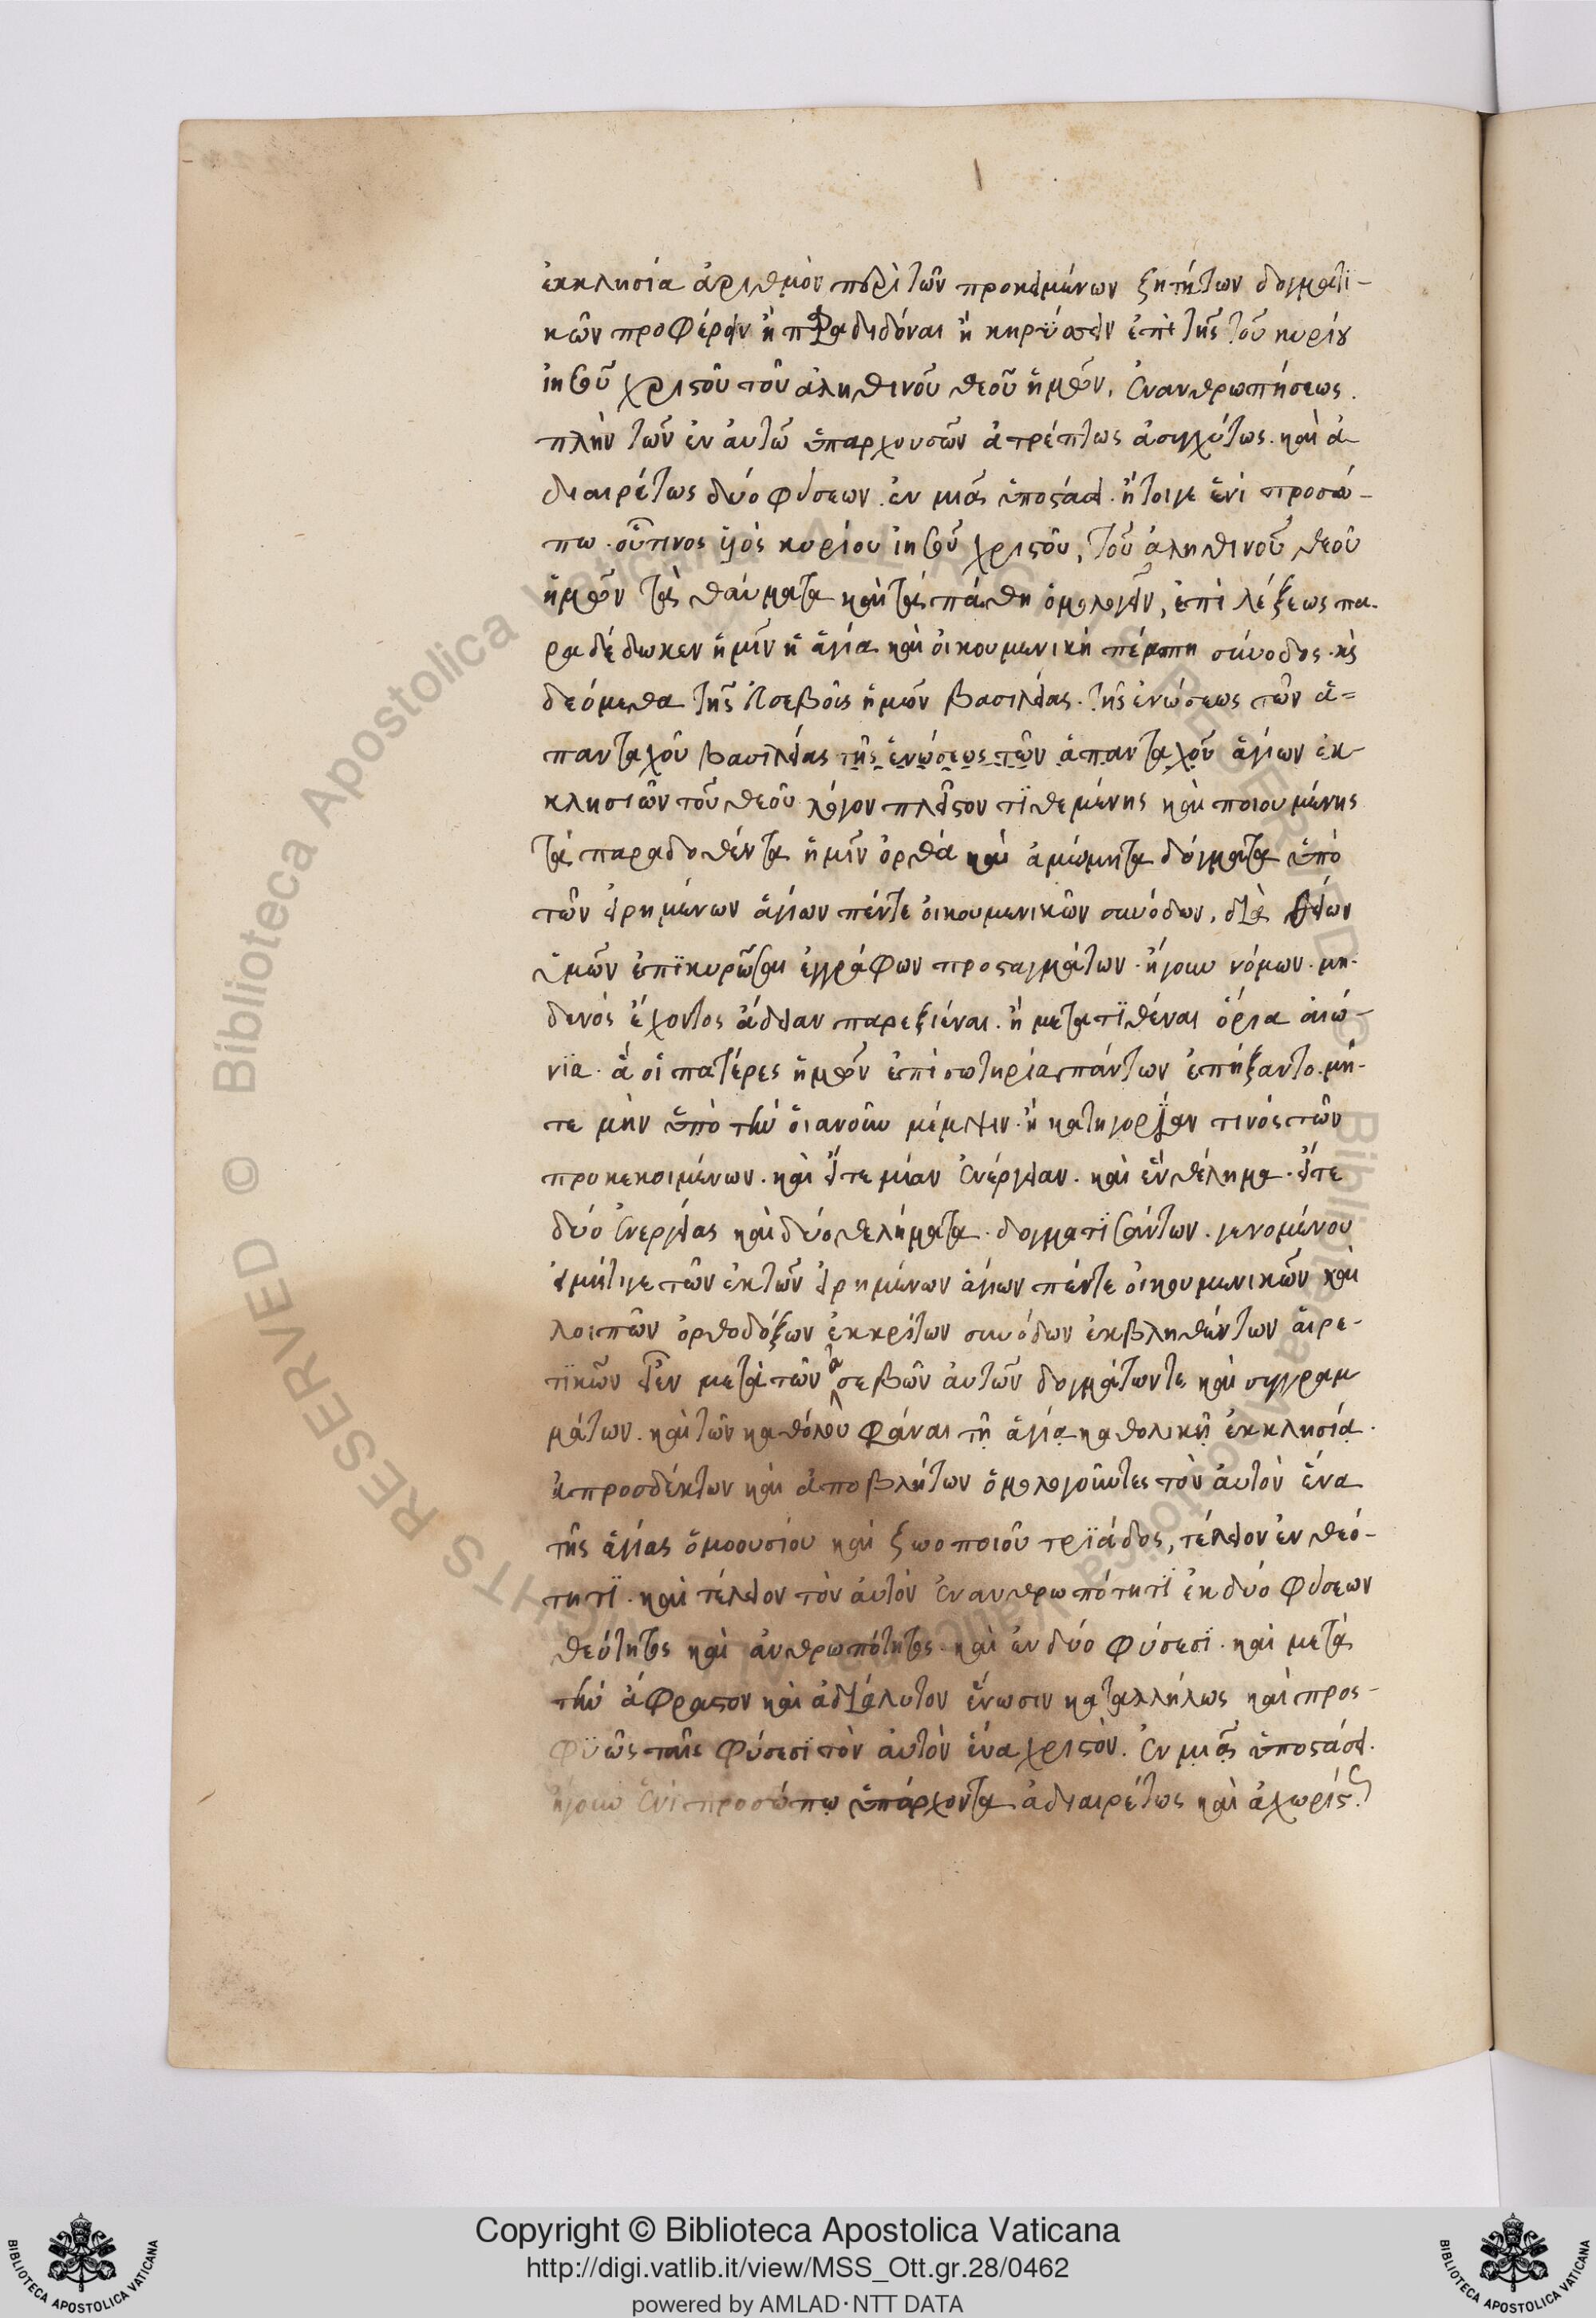 ἐκκλησία ἀριθμὸν περὶ τῶν προκειμένων ζητήτων δογματι-
κῶν προφέρειν ἢ παραδιδόναι ἢ κηρύσσειν ἐπὶ τῆς τοῦ κυρίου
ἰησοῦ χριστοῦ τοῦ ἀληθινοῦ θεοῦ ἡμῶν, ἐνανθρωπήσεως.
πλὴν τῶν ἐν αὐτῶ ὑπαρχουσῶν ἀτρέπτως ἀσυγχύτως. καὶ ἀ-
διαιρέτως δύο φύσεων. ἐν μιᾷ ὑποστάσει. ἤτοιγε ἑνὶ προσώ-
πω. οὗτινος ἑνὸς κυρίου ἰησοῦ χριστοῦ, τοῦ ἀληθινοῦ θεοῦ
ἡμῶν τὰ θαύματα καὶ τὰ πάθη ὁμολογεῖν, ἐπὶ λέξεως πα-
ραδέδωκεν ἡμῖν ἡ ἁγία καὶ οἰκουμενικὴ πέμπτη σύνοδος. καὶ
δεόμεθα τῆς εὐσεβοῦς ἡμῶν βασιλείας. τῆς ἑνώσεως τῶν ἁ-
πανταχοῦ βασιλείας τῆς ἑνώσεως τῶν ἁπανταχοῦ ἁγίων ἐκ-
κλησιῶν τοῦ θεοῦ λόγον πλεῖστον τϊθεμένης καὶ ποιουμένης
τὰ παραδοθέντα ἡμῖν ὀρθὰ καὶ ἀμώμητα δόγματα ὑπὸ
τῶν εἰρημένων ἁγίων πέντε οἰκουμενικῶν συνόδων, διὰ θείων
ὑμῶν ἐπϊκυρῶσαι ἐγγράφων προσταγμάτων. ἤγουν νόμων. μη-
δενὸς ἔχοντος ἄδειαν παρεξιέναι. ἢ μετατϊθέναι ὅρια αἰώ-
νϊα. ἃ οἱ πατέρες ἡμῶν ἐπὶ σωτηρία πάντων ἐπήξαντο. μή-
τε μὴν ὑπὸ τὴν οἱανοῦν μέμψιν. ἢ κατηγορίαν τινὸς τῶν
προκεκοιμένων. καὶ εἴτε μίαν ἐνέργειαν. καὶ ἓν θέλημα. εἴτε
δύο ἐνεργείας καὶ δύο θελήματα. δογματϊσάντων. γενομένου
εἰμήτιγε τῶν ἐκ τῶν εἰρημένων ἁγίων πέντε οἰκουμενικῶν καὶ
λοιπῶν ὀρθοδόξων ἐκκρίτων συνόδων ἐκβληθέντων αἱρε-
τϊκῶν μετὰ τῶν ἀσεβῶν αὐτῶν δογμάτων τε καὶ συγγραμ
μάτων. καὶ τῶν καθόλου φάναι τῇ ἁγίᾳ καθολικῇ ἐκκλησίᾳ.
ἀπροσδέκτων καὶ ἀποβλήτων ὁμολογοῦντες τὸν αὐτὸν ἕνα
τῆς ἁγίας ὁμοουσίου καὶ ζωοποιοῦ τρϊάδος, τέλειον ἐν θεό-
τητϊ. καὶ τέλειον τὸν αὐτὸν ἐν ανθρωπότητϊ ἐκ δύο φύσεων
θεότητος καὶ ἀνθρωπότητος. καὶ ἐν δύο φύσεσϊ. καὶ μετὰ
τὴν ἄφραστον καὶ ἀδιάλυτον ἕνωσιν καταλλήλως καὶ προσ-
φϋῶς ταῖς φύσεσϊ τὸν αὐτὸν ἕνα χριστὸν. ἐν μιᾷ ὑποστάσει.
ἤγουν ἑνὶ προσώπῳ ὑπάρχοντα ἀδιαιρέτως καὶ ἀχωρίστως
Copyright © Biblioteca Apostolica Vaticana
http://digi.vatlib.it/view/MSS_Ott.gr.28/0462
powered by AMLAD·NTT DATA
BIBLIOTECA APOSTOLICA VATICANA
BIBLIOTECA APOSTOLICA VATICANA